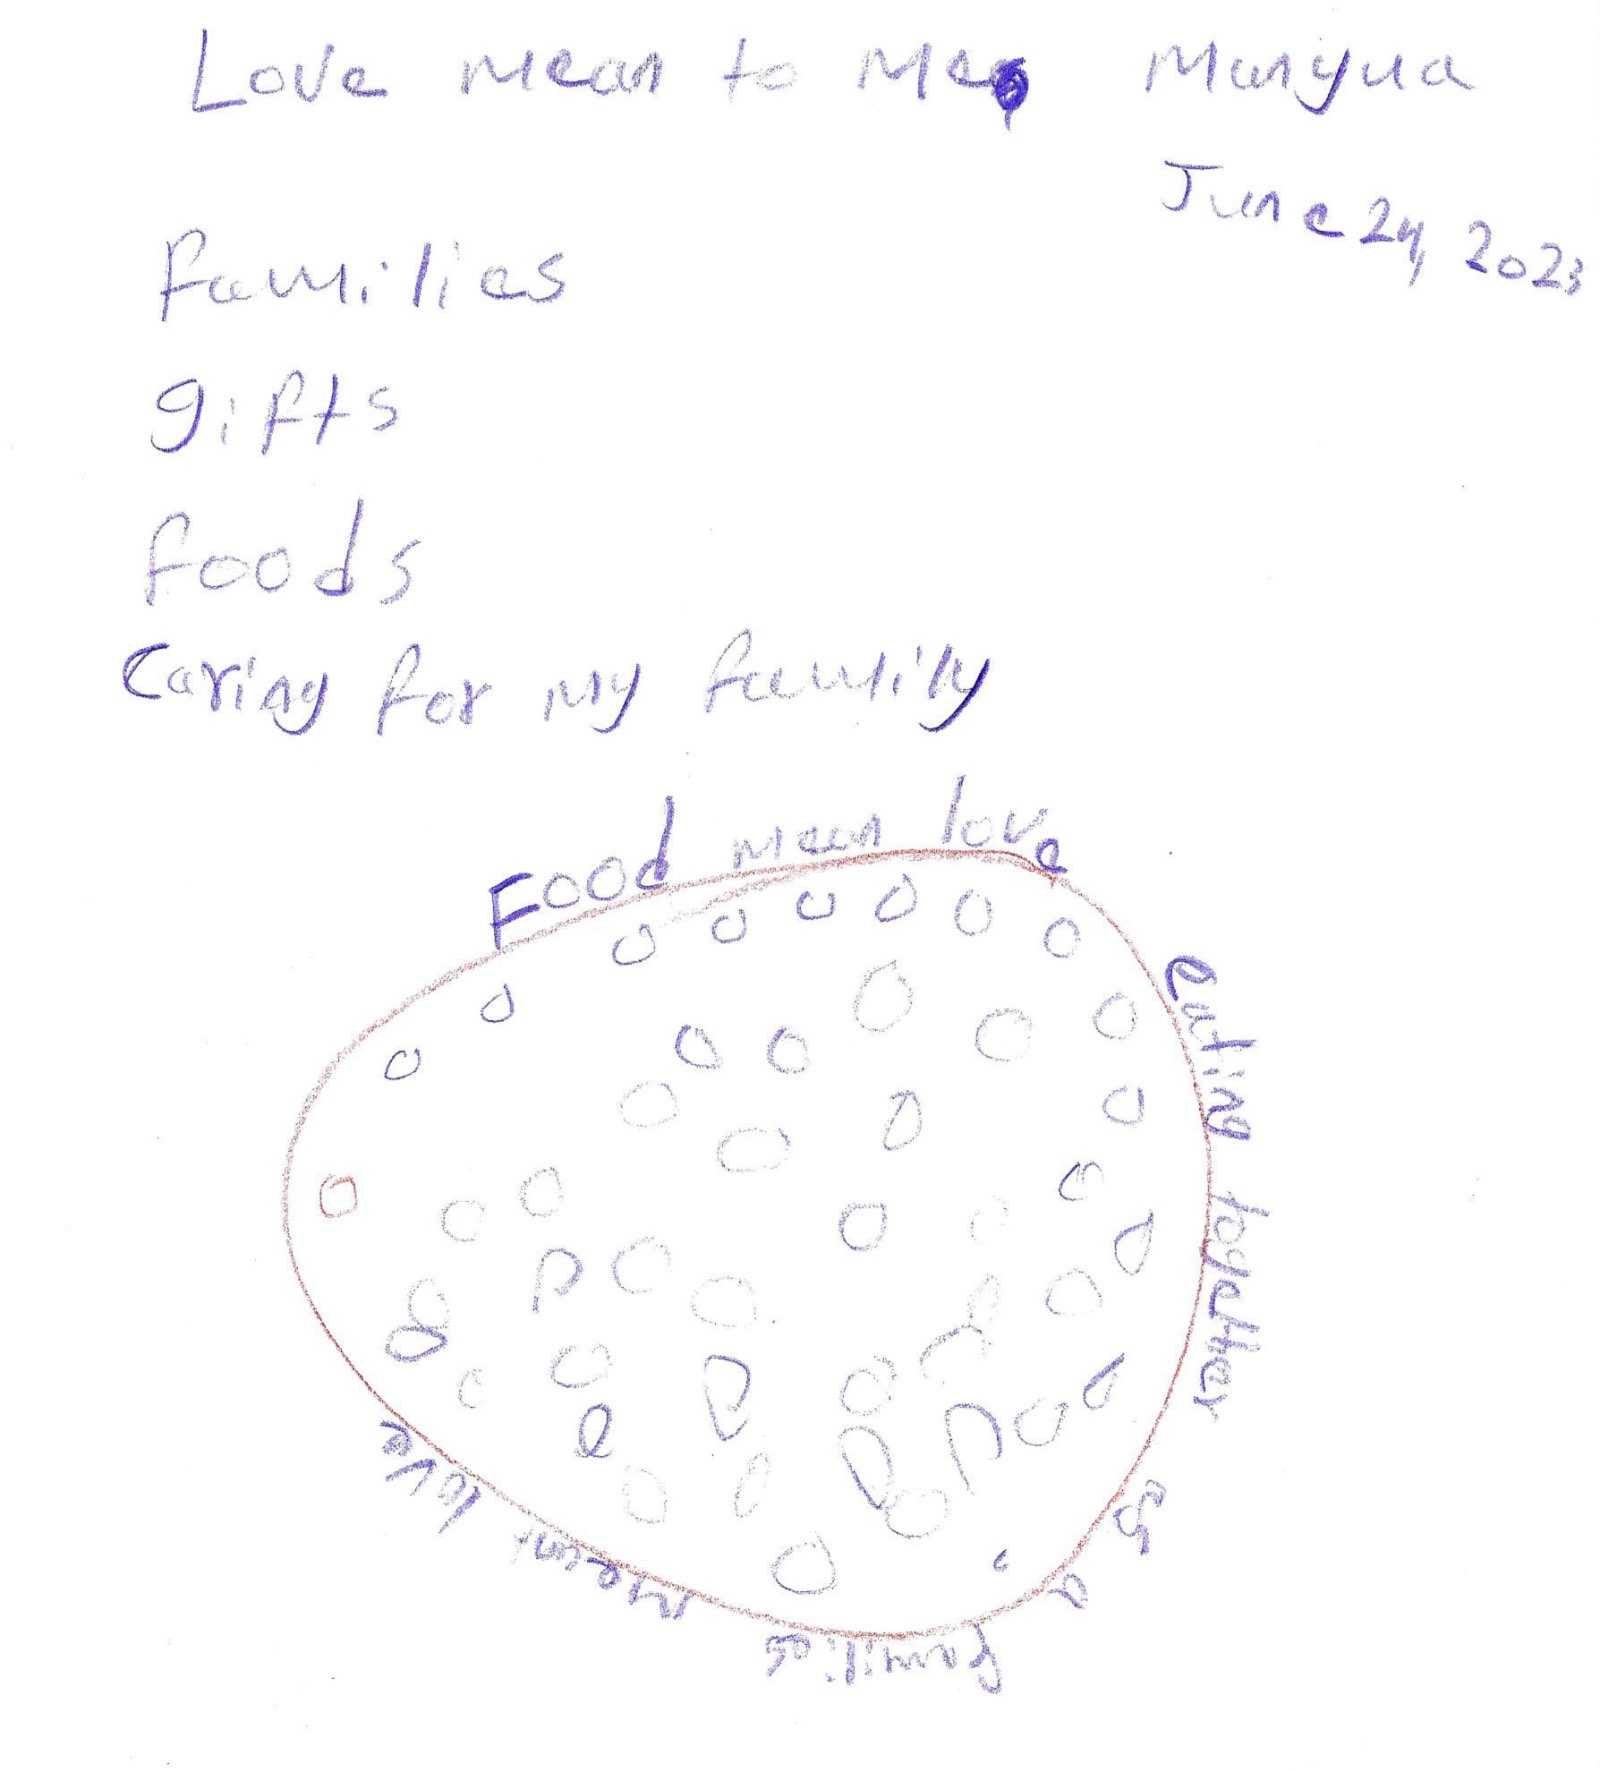 Love mean to me, Manyua
June 24, 2023
families
gifts
foods
Caring for my family
Food mean love
eating together
as
a
families
meant love